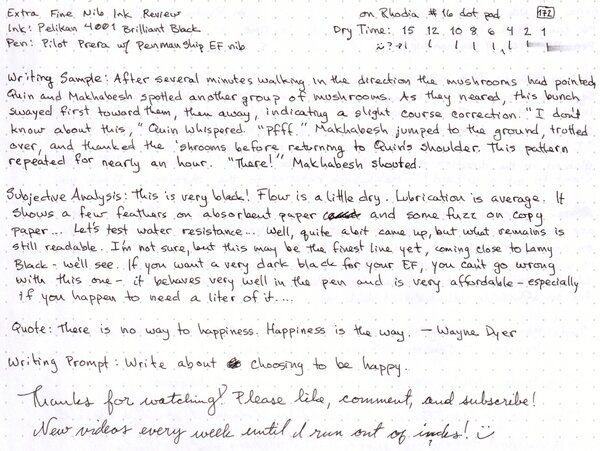 Extra Fine Nib Ink Review on Rhodia #16 dot pad 172
Ink: Pelikan 4001 Brilliant Black Dry Time: 15 12 10 8 6 4 2 1
Pen: Pilot Prera w/ Penmanship EF nib
Writing Sample: After several minutes walking in the direction the mushrooms had pointed,
Quin and Makhabesh spotted another group of mushrooms. As they neared, this bunch
swayed first toward them, then away, indicating a slight course correction. "I don't
know about this," Quin whispered. "Pfff." Makhabesh jumped to the ground, trotted
over, and thanked the 'shrooms before returning to Quin's shoulder. This pattern
repeated for nearly an hour. "There!" Makhabesh shouted.
Subjective Analysis: This is very black! Flow is a little dry. Lubrication is average. It
shows a few feathers on absorbent paper and some fuzz on copy
paper... Let's test water resistance... Well, quite a bit came up, but what remains is
still readable. I'm not sure, but this may be the finest line yet, coming close to Lamy
Black - we'll see. If you want a very dark black for your EF, you can't go wrong
with this one - it behaves very well in the pen and is very affordable - especially
if you happen to need a liter of it....
Quote: There is no way to happiness. Happiness is the way. - Wayne Dyer
Writing Prompt: Write about choosing to be happy.
Thanks for watching! Please like, comment, and subscribe!
New videos every week until I run out of inks!